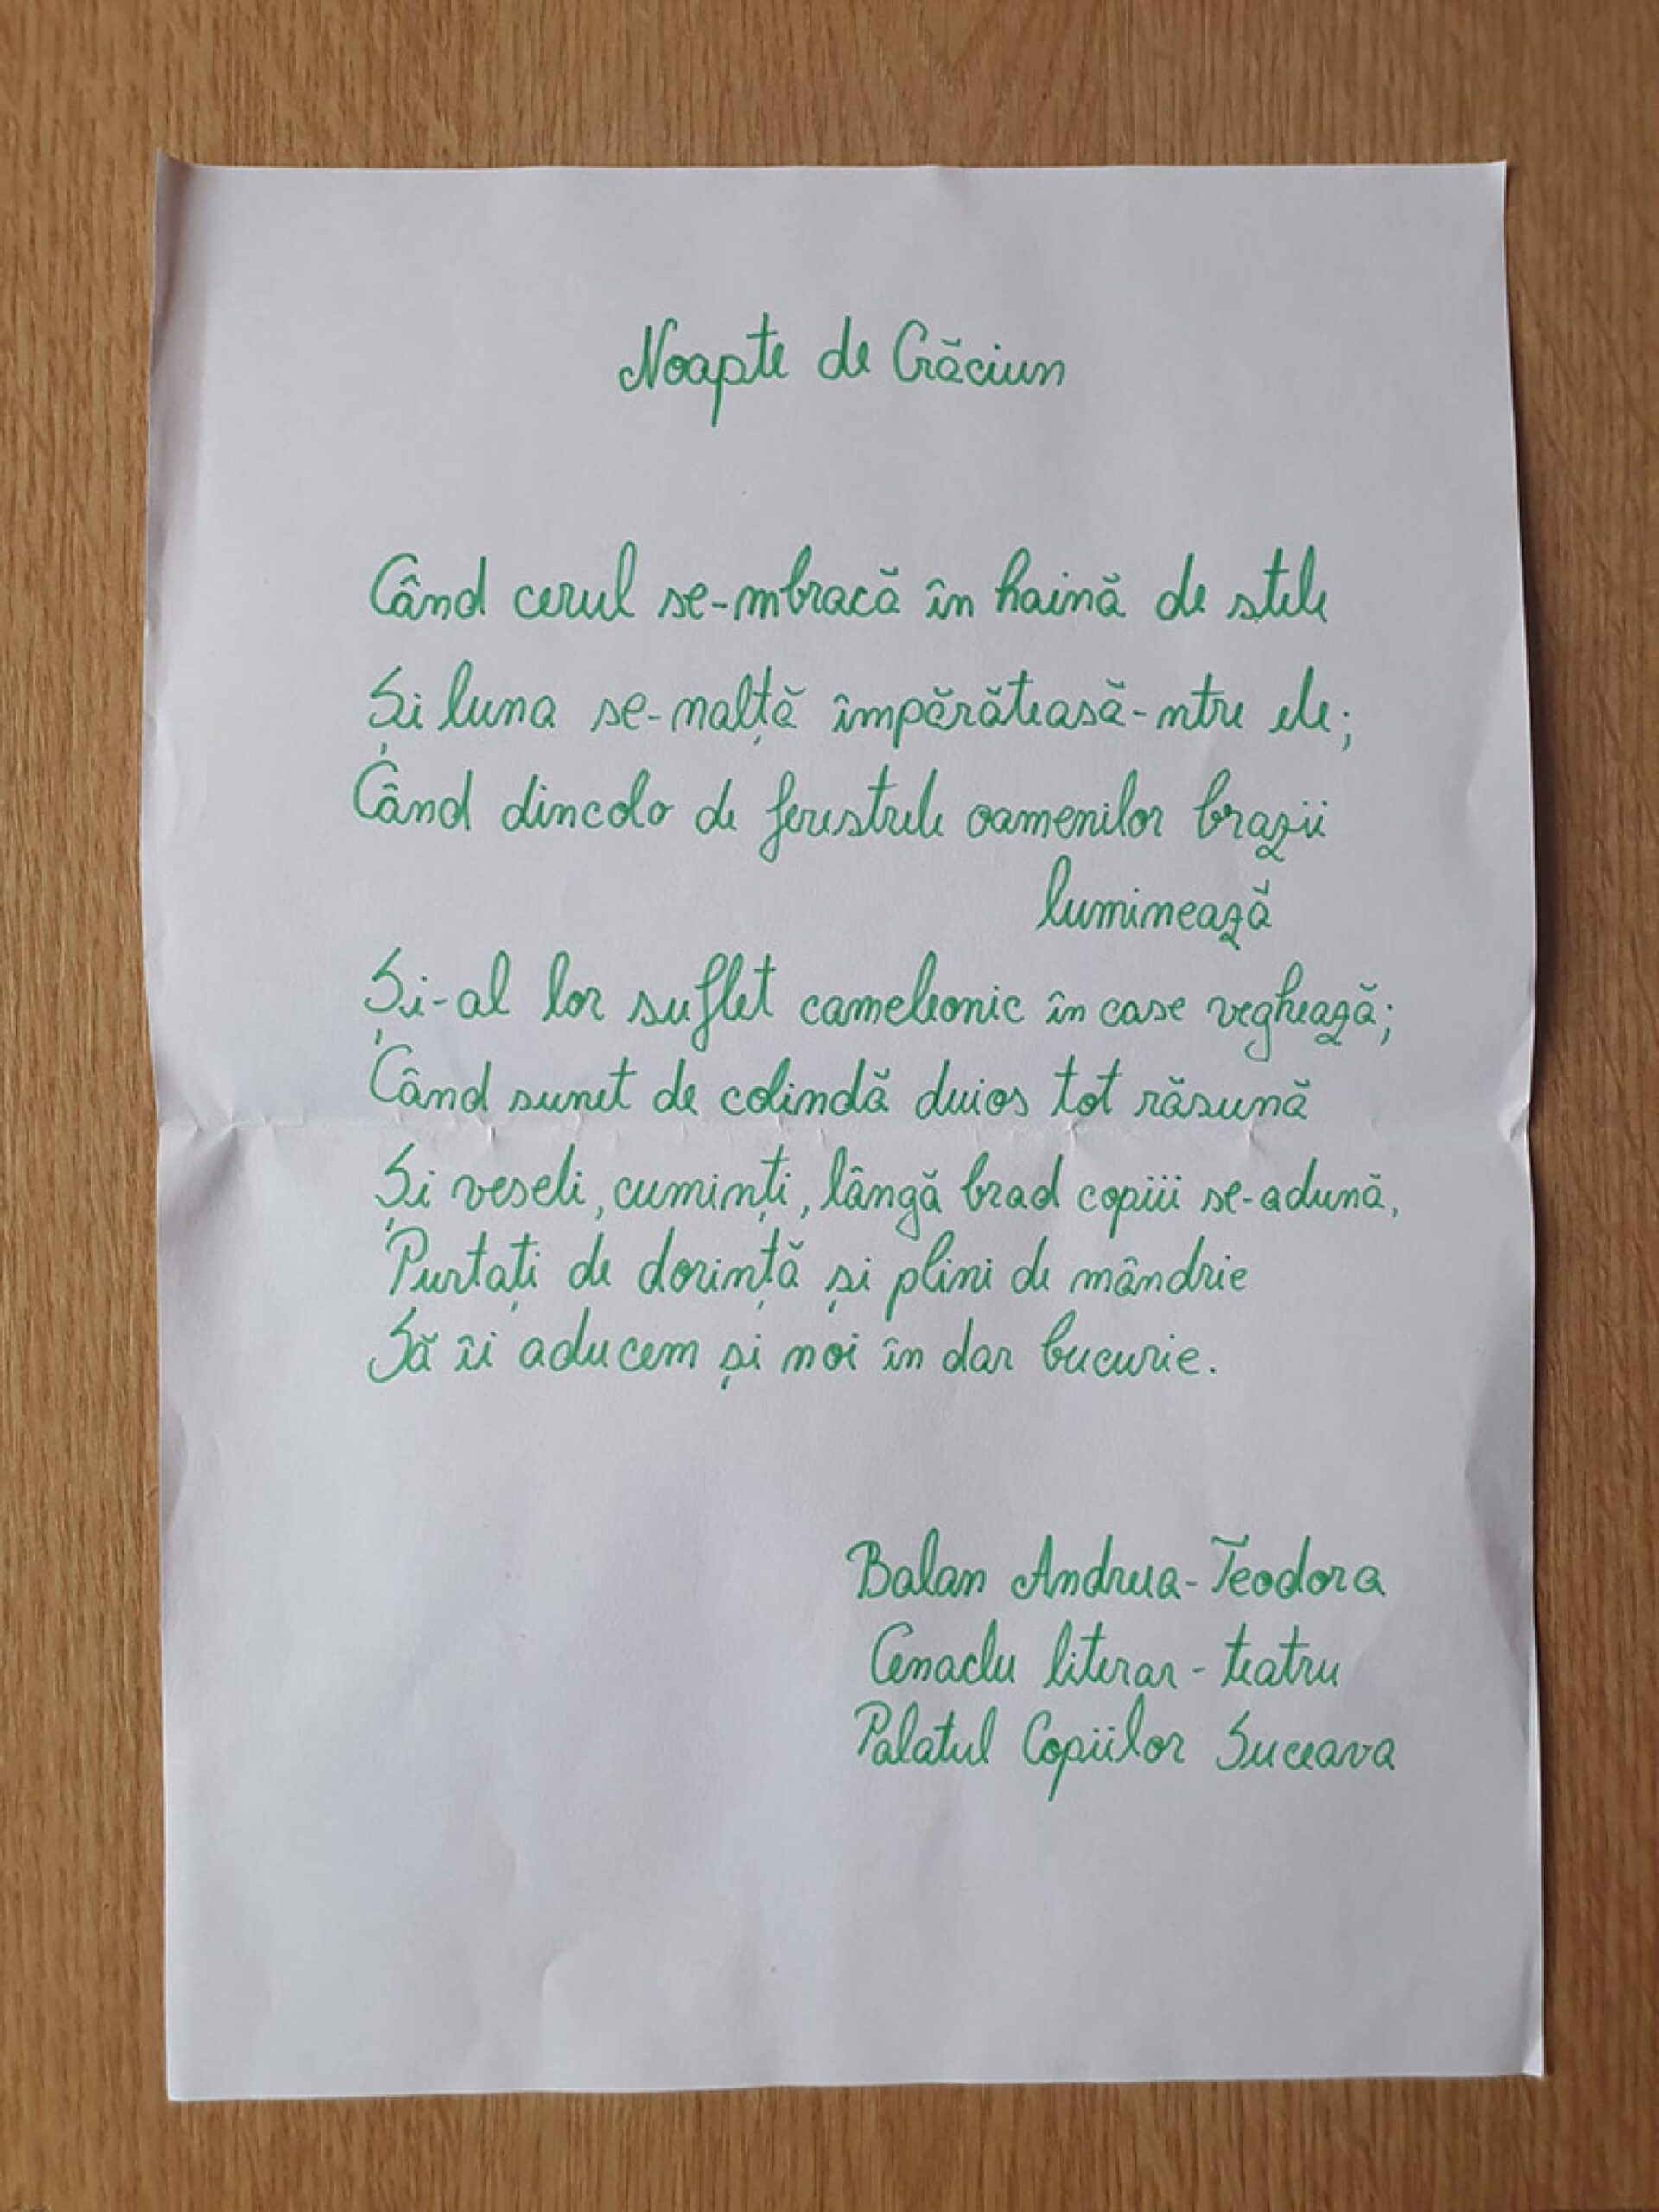 Noapte de Crăciun
Când cerul se-mbracă în haină de stele
Și luna se-nalță împărăteasă-ntre ele;
Când dincolo de ferestrele oamenilor brazii
luminează
Și-al lor suflet cameleonic în case veghează;
Când sunet de colindă duios tot răsună
Și veseli, cuminți, lângă brad copiii se-adună,
Purtați de dorință și plini de mândrie
Să îi aducem și noi în dar bucurie.
Balan Andreea-Teodora
Cenaclu literar - teatru
Palatul Copiilor Suceava